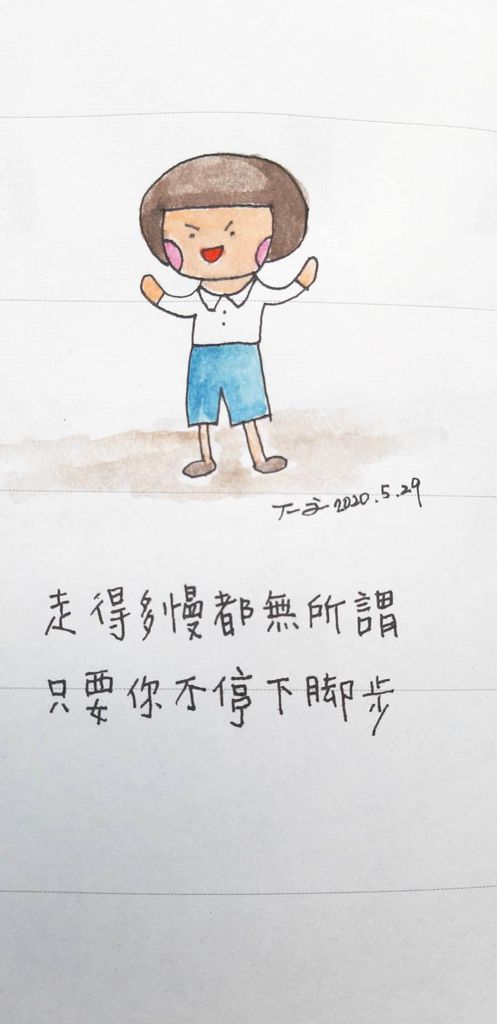 2020.5.29
走得多慢都無所謂
只要你不停下脚步